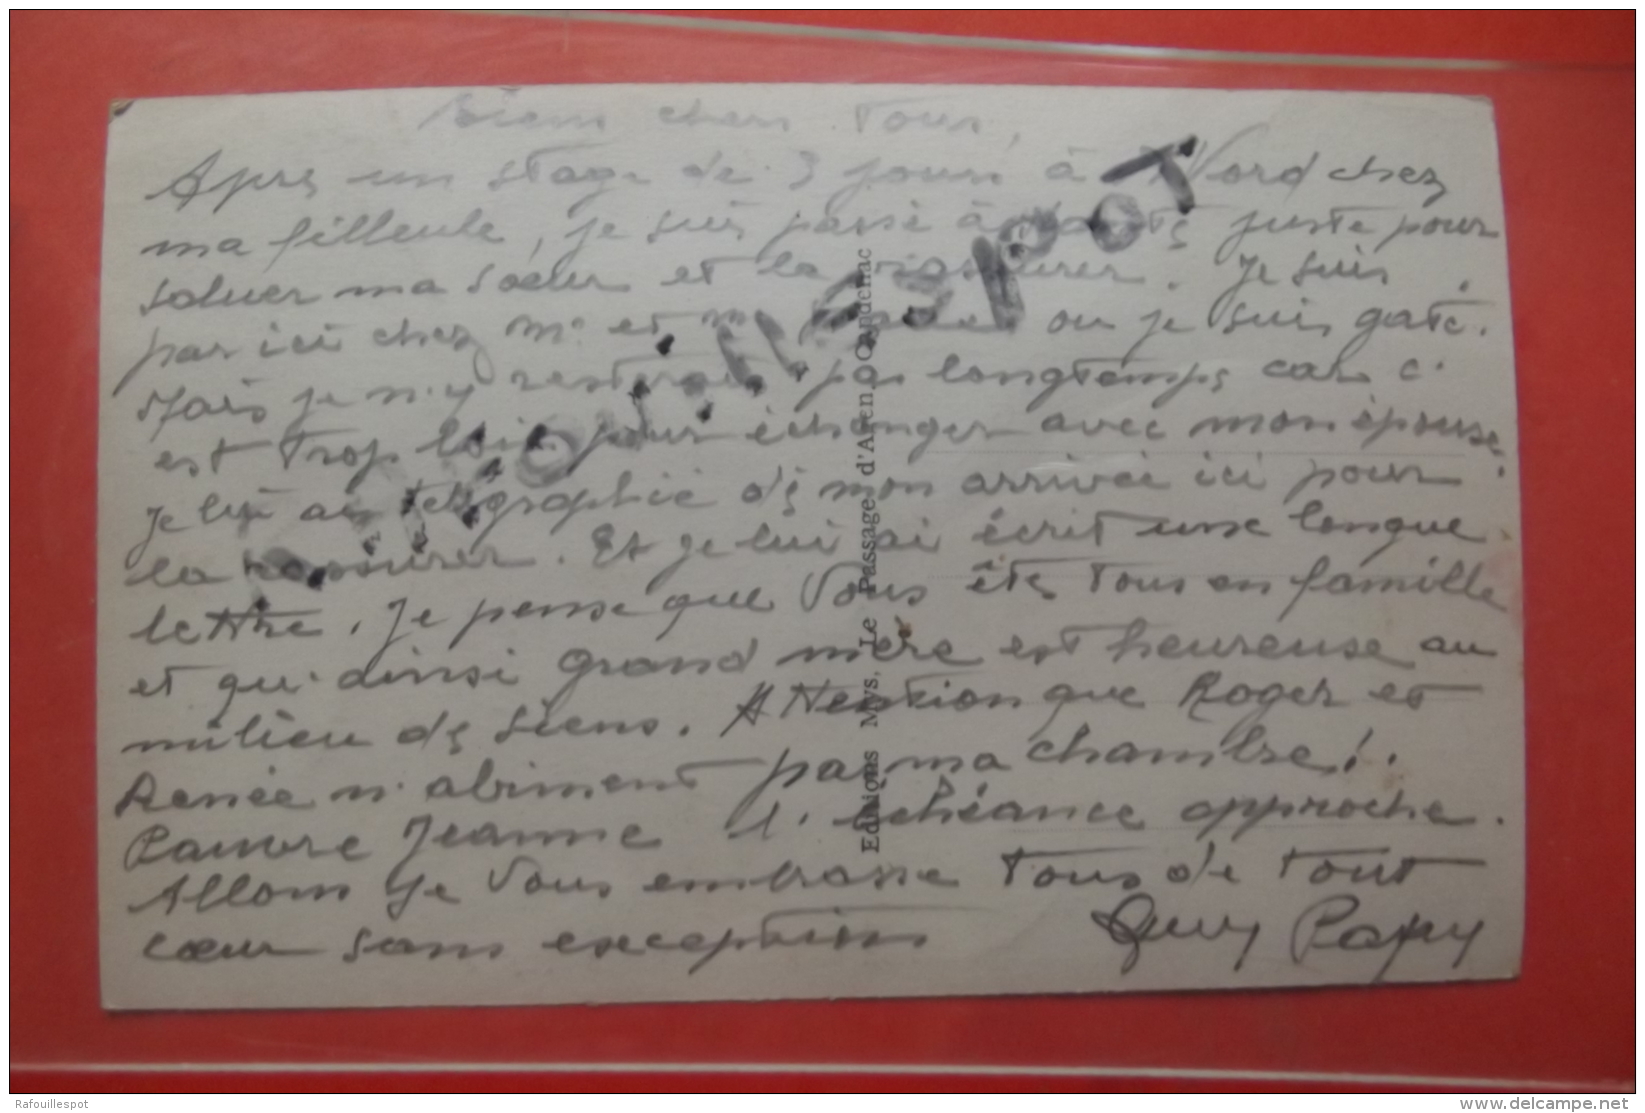 Biens chers Tous,
Après un stage de 3 jours à Niord chez
ma filleule, je suis passé à juste pour
saluer ma sœur et la rassurer. Je suis
par ici chez Mr et Mme ou je suis gaté.
Mais je n'y resterais pas longtemps car c'
est trop loin pour échanger avec mon épouse.
Je lui ai télégraphié dès mon arrivée ici pour
la rassurer. Et je lui ai écrit une longue
lettre. Je pense que vous êtes tous en famille
et qu'ainsi grand mère est heureuse au
milieu des siens. Attention que Roger et
Renée n'abiment pas ma chambre!.
Pauvre Jeanne l'échéance approche.
Allons je vous embrasse tous de tout
cœur sans exceptions Guy Papy
Editions Mys, Le Passage d'Agen O Gandelhac
Rafouillespot
www.delcampe.net